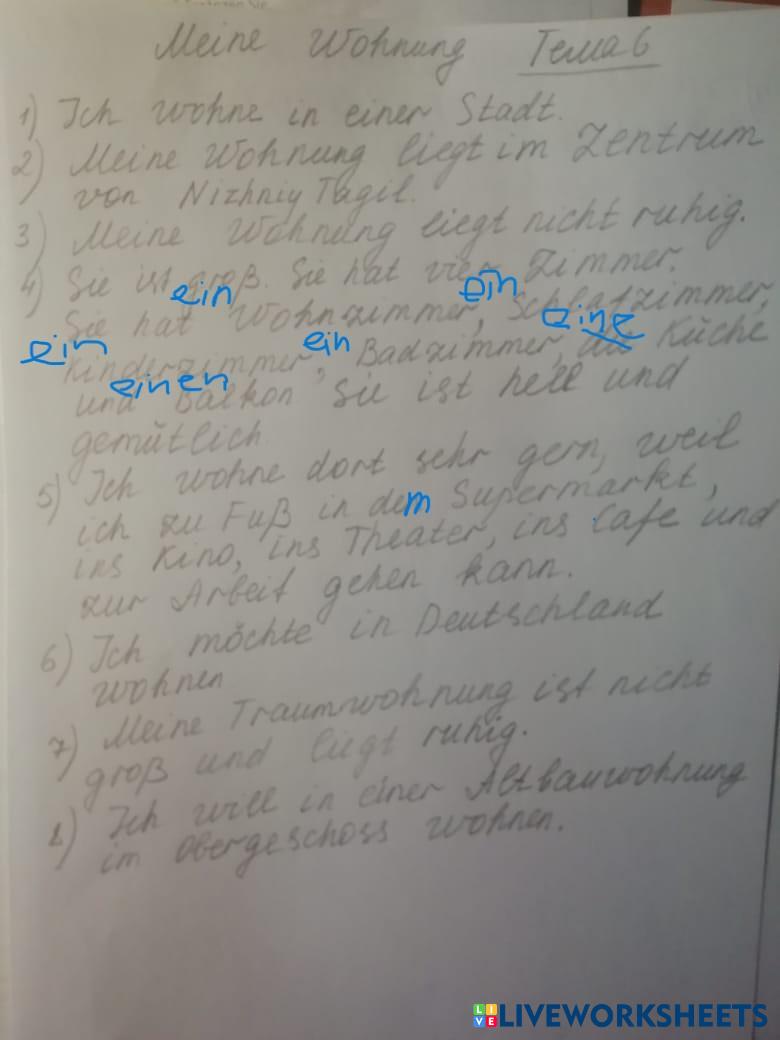 Meine Wohnung Тема 6
1) Ich wohne in einer Stadt.
2) Meine Wohnung liegt im Zentrum
von Nizhniy Tagil.
3) Meine Wohnung liegt nicht ruhig.
4) Sie ist groß. Sie hat vier Zimmer.
ein ein
Sie hat Wohnzimmer, Schlafzimmer,
ein ein eine
Kinderzimmer, Badzimmer, Küche
einen
und Balkon Sie ist hell und
gemütlich
5) Ich wohne dort sehr gern, weil
ich zu Fuß in dem Supermarkt,
ins Kino, ins Theater, ins Cafe und
zur Arbeit gehen kann.
6) Ich möchte in Deutschland
wohnen
7) Meine Traumwohnung ist nicht
groß und liegt ruhig.
8) Ich will in einer Altbauwohnung
im Obergeschoss wohnen.
LIVEWORKSHEETS